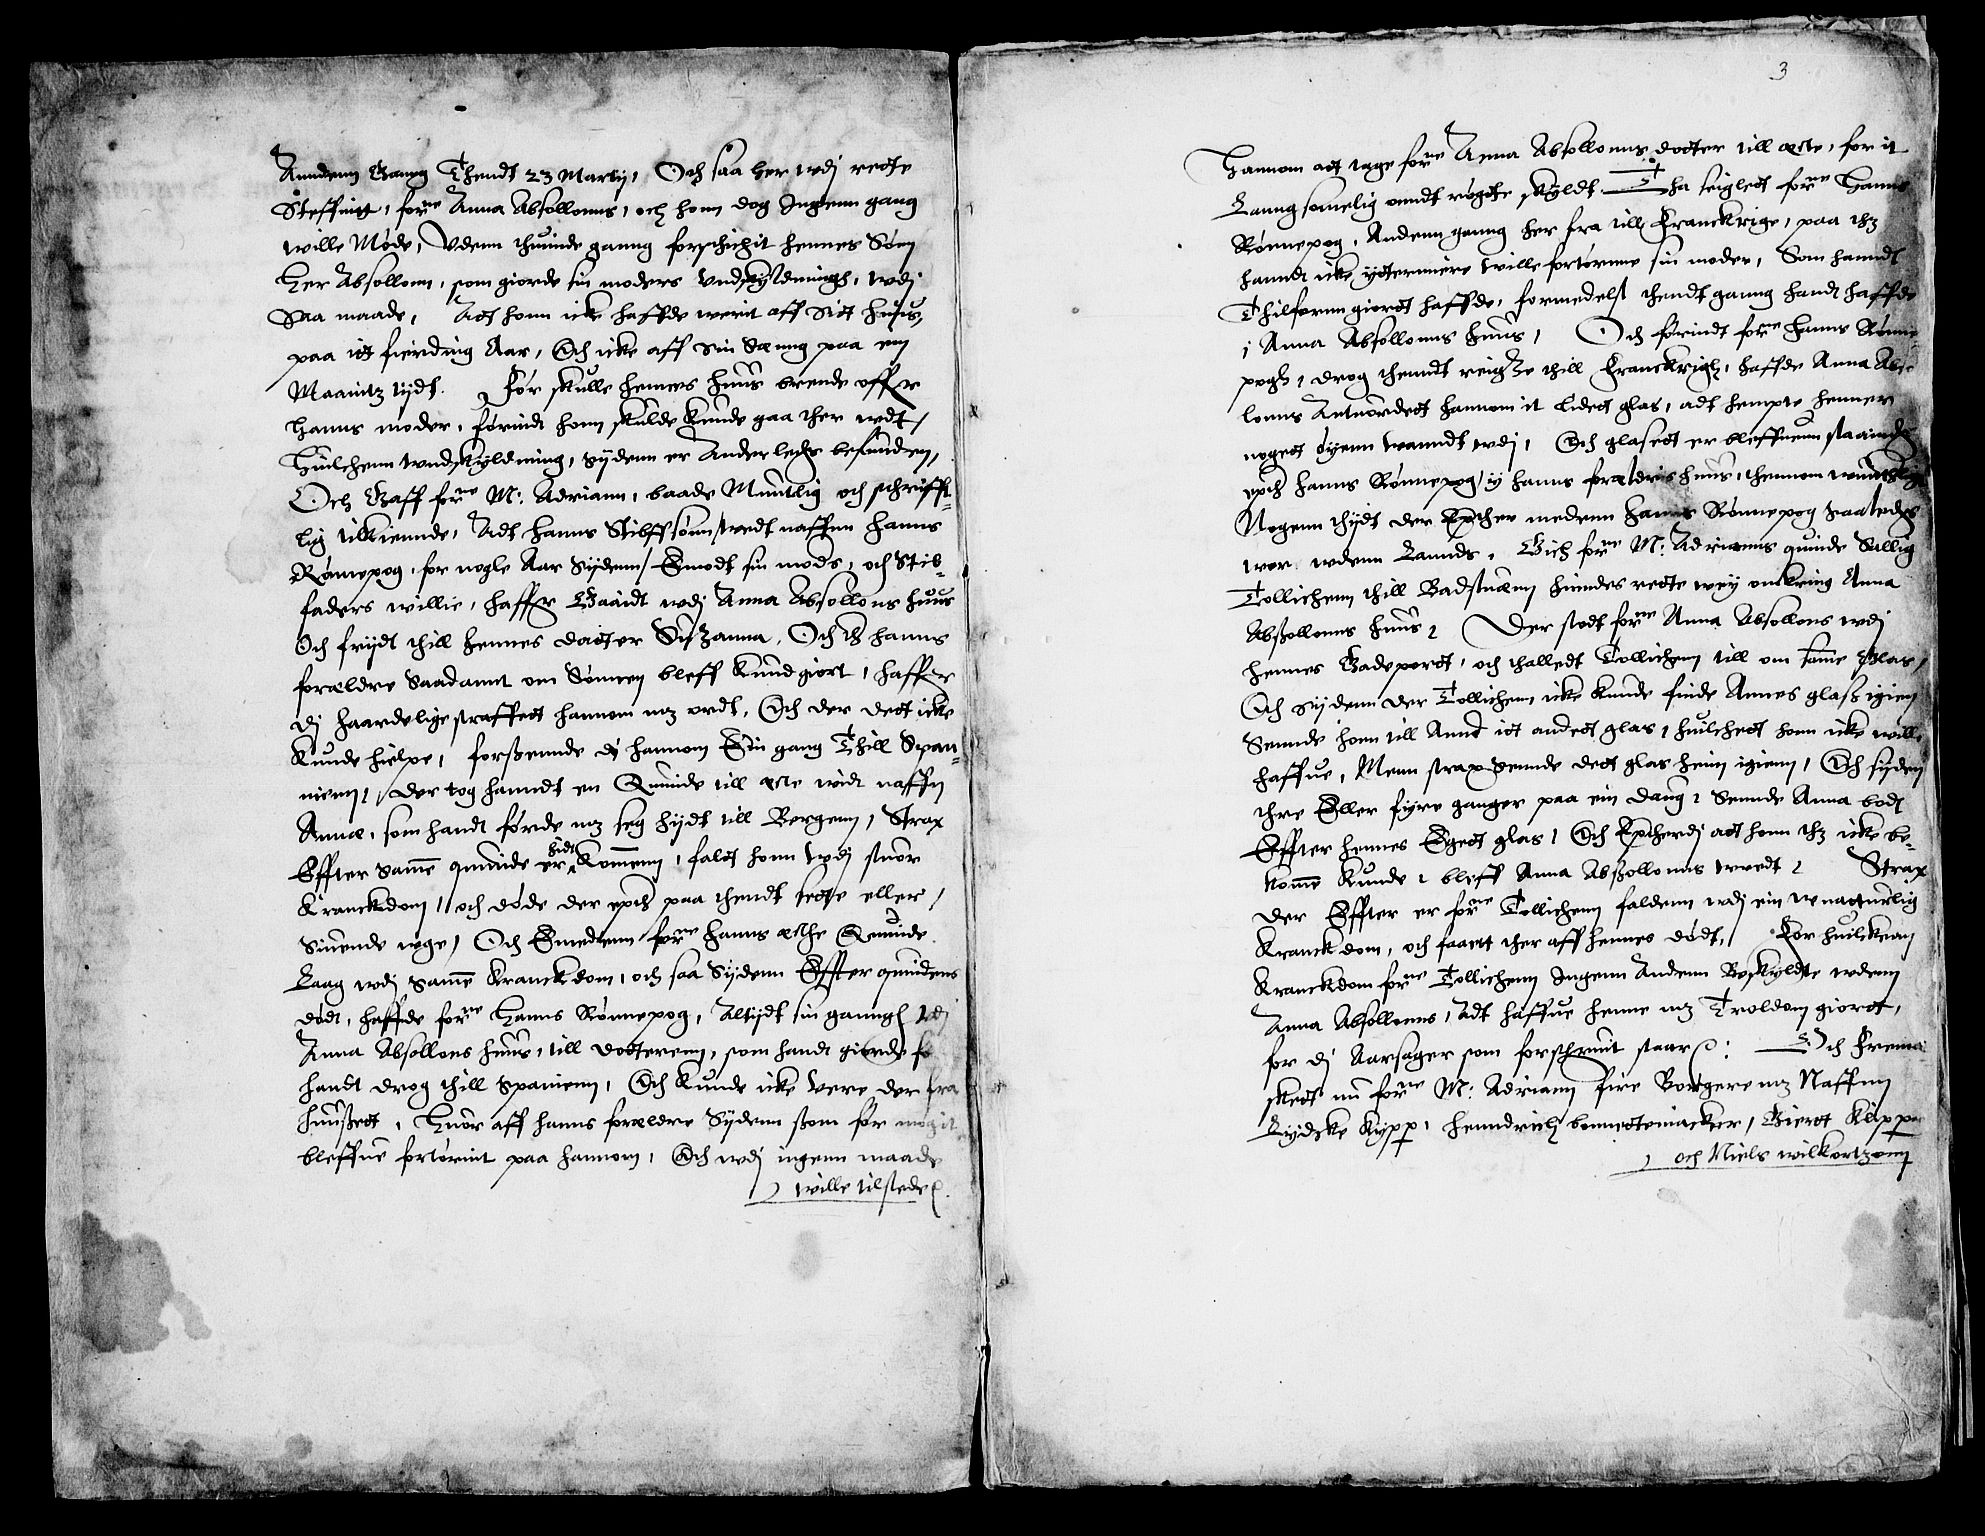 Anndenn Gang Thendt 23 Martij, Och saa her wdj rette
Steffnitt, forne Anna Absollonns, och honn dog Ingenn gang
wille Møde, Vdenn thuinde ganng forschichit hennes Søn
Her Absollonn, som giorde sin moders Vndskyldningh, wdj
Saa maade, Att honn icke haffde werit aff Sitt huus,
paa itt fierding Aar, Och icke aff Sin Sæng paa en
Maanitz tydt. For skulle hennes huus brende offuer
hanns moder, førindt honn skulde kunde gaa ther wdt,
Huilchenn wndskyldning, Sydenn er Anderledis befunden,
Och Gaff forne M: Adriann, baade Mundtlig och schrifft-
lig tilkiennde, Adt hanns Stiffsønn, wedt naffnn Hanns
Rønnepog, for nogle Aar Sydenn, Emodt sin mods, och Stif-
faders willie, haffuer Gaaidt wdj Anna Absollons huus
Och frydt thill hennes datter Suszanna, Och tha hanns
forældre Saadannt om Sønnen bleff kundgiort, haffuer
dj haardelige straffett hannom mz ordt, Och der dett icke
kunde hielpe, forsende dj hannom Ein gang Thill Span-
nienn, der tog hanndt en Quinde till ecte wedt naffn
Anna, som handt førde mz seg hydt till Bergenn, Strax
Effter Samme quinde er hidt kommenn, faldt honn wdj stuor
Kranckdom, och døde der epther paa thendt siette eller,
Siuende wge, Och Emedenn forne Hanns ecthe Quinde
Laag wdj Samme Kranckdom, och saa Sydenn Effter quindens
dødt, haffde forne Hanns Rønnepog, Altydt sin ganngh wdj
Anna Absollons huus, till dotterenn, som handt giorde før
handt drog thill Spanienn, Och kunde icke vere der fra
huussett, Huor aff hanns forældre Sydenn ssom for megit
bleffue fortørnit paa hannom, Och wdj ingenn maade
wille tilstede
3
Hannom att tage forne Anna Absollonns dotter till ecte, for it
Lanngsomelig ondt røgthe skyldt Tha seigledt forne Hanns
Rønnepog, Andenn ganng her fra till Franckrige, paa thz
handt icke ydermere wille fortørnne sin moder, Som handt
Thilfornn giordt haffde, formedelst thendt ganng handt haffde
j Anna Absollonns huus, Och førindt forne Hanns Rønne-
pogh, drog thenndt reigsze thill Franckrigh, haffde Anna Abso-
lonns Antuordett hannom it lidett glas, adt hempte henner
nogett øyenn wanndt wdj, Och glasett er bleffuenn staaindis
epther Hanns Rønnepog, y hanns forældris huus, thennom wuitterlig
Nogenn thydt der Epther medenn Hanns Rønnepog saaledis
wor wdenn Lannds, Gich forne M: Adrianns quinde Sallig
Tollichenn thill Badstuenn hindes rette wey omkring Anna
Absollonns huus, Der stodt forne Anna Absollons wdj
hennes Gadeportt, och thalledt Tollichen till om samme Glas,
Och Sydenn der Tollichenn icke kunde finde Annes glass igien
Sennde honn till Anna itt andett glas, huilchett honn icke wille
haffue, Menn strax sennde dett glas hiem igienn, Och syden
thre Eller fyre ganger paa ein daug, Sennde Anna bodt
Effter hennes Egett glas, Och Epther dj att honn thz icke be-
komme kunde, bleff Anna Absollonns wredt, Strax
der Effter er forne Tollichenn faldenn wdj ein wnatturlig
Kranckdom, och faaett ther aff hennes dødt, For huilckenn
Kranckdom forne Tollichenn Ingenn Andenn Beskyldte wdenn
Anna Absollonns, Adt haffue henne mz Troldom giordt,
for dj Aarsager som forschreuit staar: Och Frema
skedt nu forne M: Adriann fire Borgere mz Naffnn
Lydicke Kypper, Henndrich bonnettmacker, Giertt Klipper
och Niels wilkortzenn